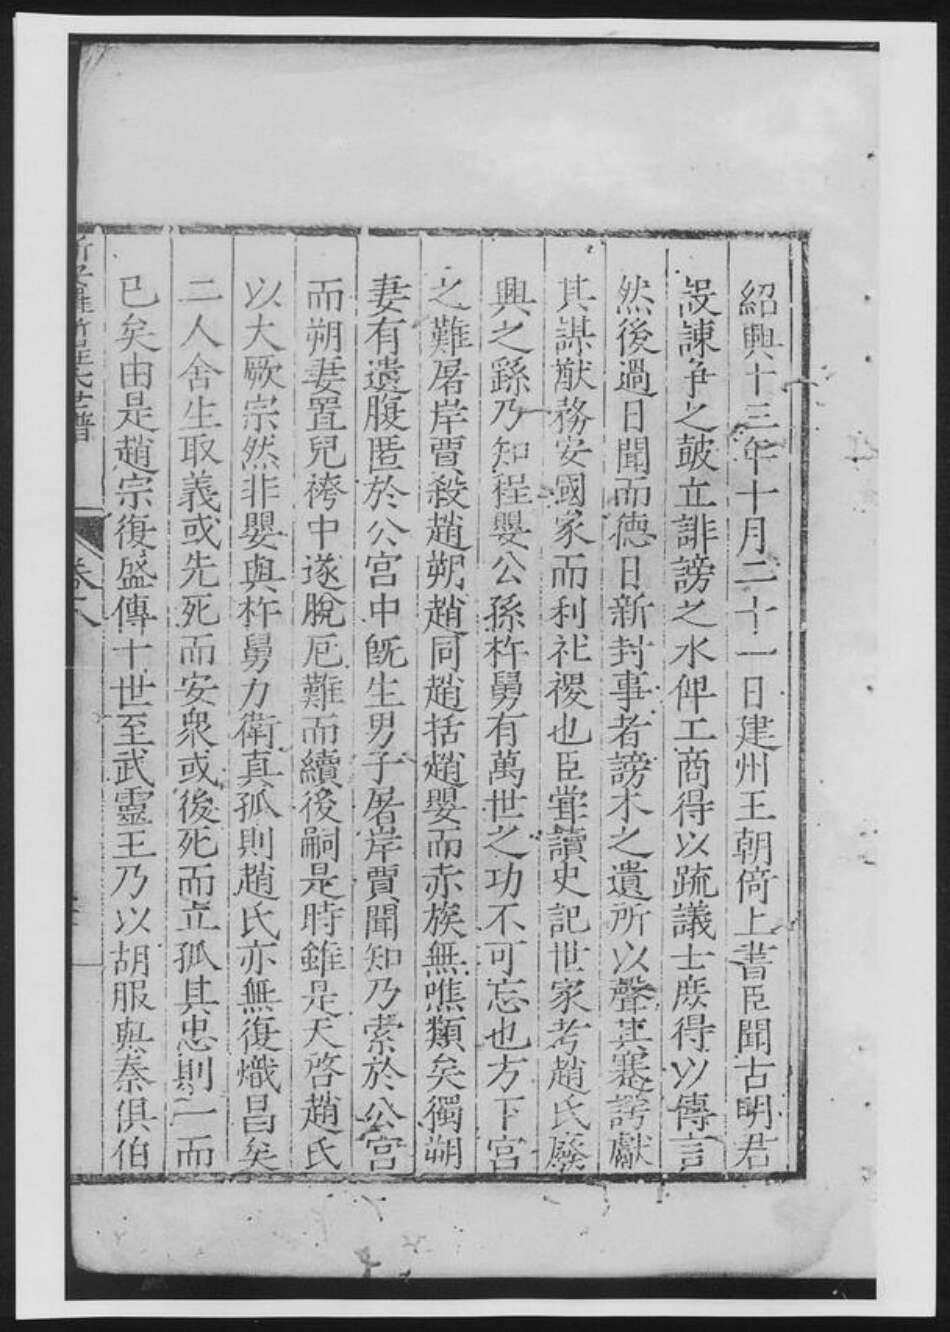 紹興十三年十月二十一日建州王朝倚上書臣聞古明君
設諫爭之鼓立誹謗之木俾工商得以疏議士庶得以傳言
然後過日聞而德日新封事者謗木之遺所以聲其蹇諤獻
其謀猷務安國家而利社稷也臣嘗讀史記世家考趙氏廢
興之繇乃知程嬰公孫杵舅有萬世之功不可忘也方下宮
之難屠岸賈殺趙朔趙同趙括趙嬰而赤族無噍類矣獨朔
妻有遺腹匿於公宮中旣生男子屠岸賈聞知乃索於公宮
而朔妻置兒袴中遂脫厄難而續後嗣是時雖是天啓趙氏
以大厥宗然非嬰與杵舅力衛真孤則趙氏亦無復熾昌矣
二人舍生取義或先死而安衆或後死而立孤其忠則一而
已矣由是趙宗復盛傳十世至武靈王乃以胡服與秦俱伯
卷八